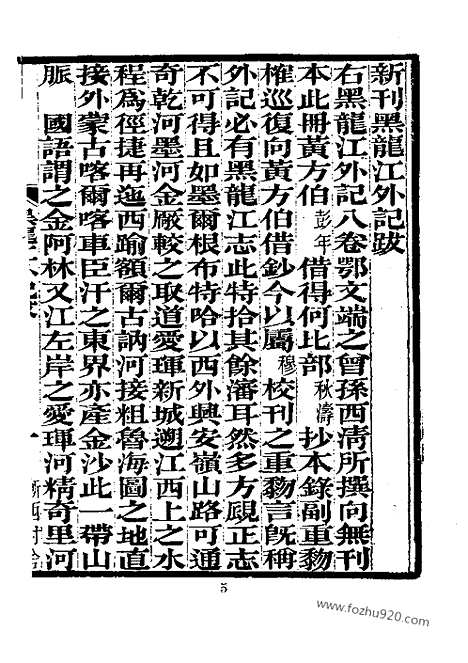 新刊黑龍江外記跋
右黑龍江外記八卷鄂文端之曾孫西清所撰向無刊
本此冊黃方伯彭年借得何比部秋濤抄本錄副重黎
榷巡復向黃方伯借鈔今以屬穆校刊之重黎言旣稱
外記必有黑龍江志此特拾其餘瀋耳然多方覛正志
不可得且如墨爾根布特哈以西外興安嶺山路可通
奇乾河墨河金廠較之取道愛琿新城遡江西上之水
程爲徑捷再迤西踰額爾古訥河接粗魯海圖之地直
接外蒙古喀爾喀車臣汗之東界亦產金沙此一帶山
脈 國語謂之金阿林又江左岸之愛琿河精奇里河
一
5
www.fozhu920.com